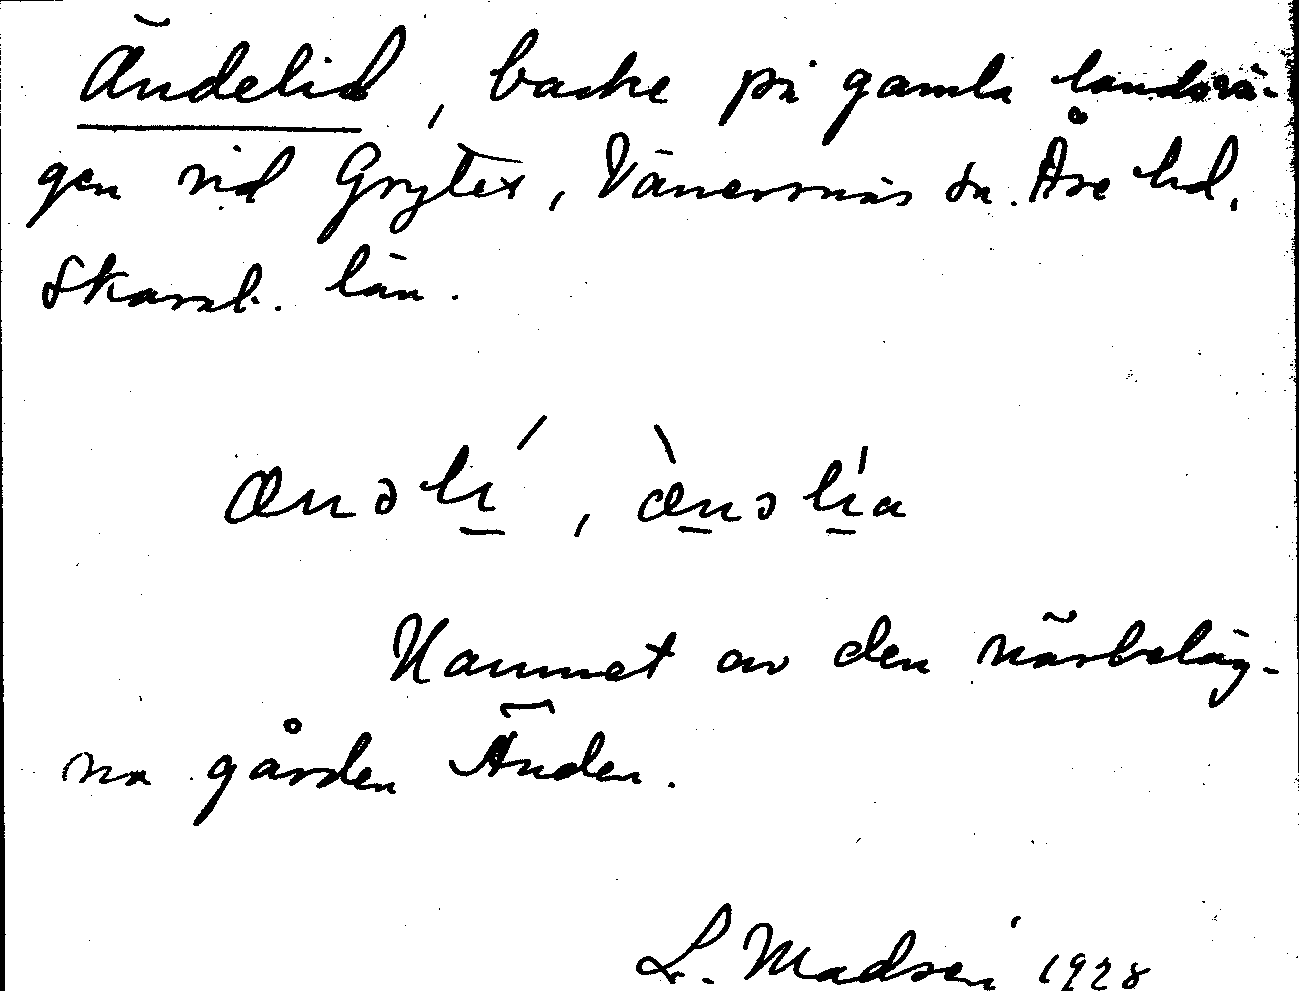 Ändelid, backe på gamla landsvä-
gen vid Grytet, Vänersnäs sn. Åse hd,
Skarab. län.
ænəlı́, æ̀nəlı́a
Namnet av den närbeläg-
na gården Änden.
L. Madsén 1928